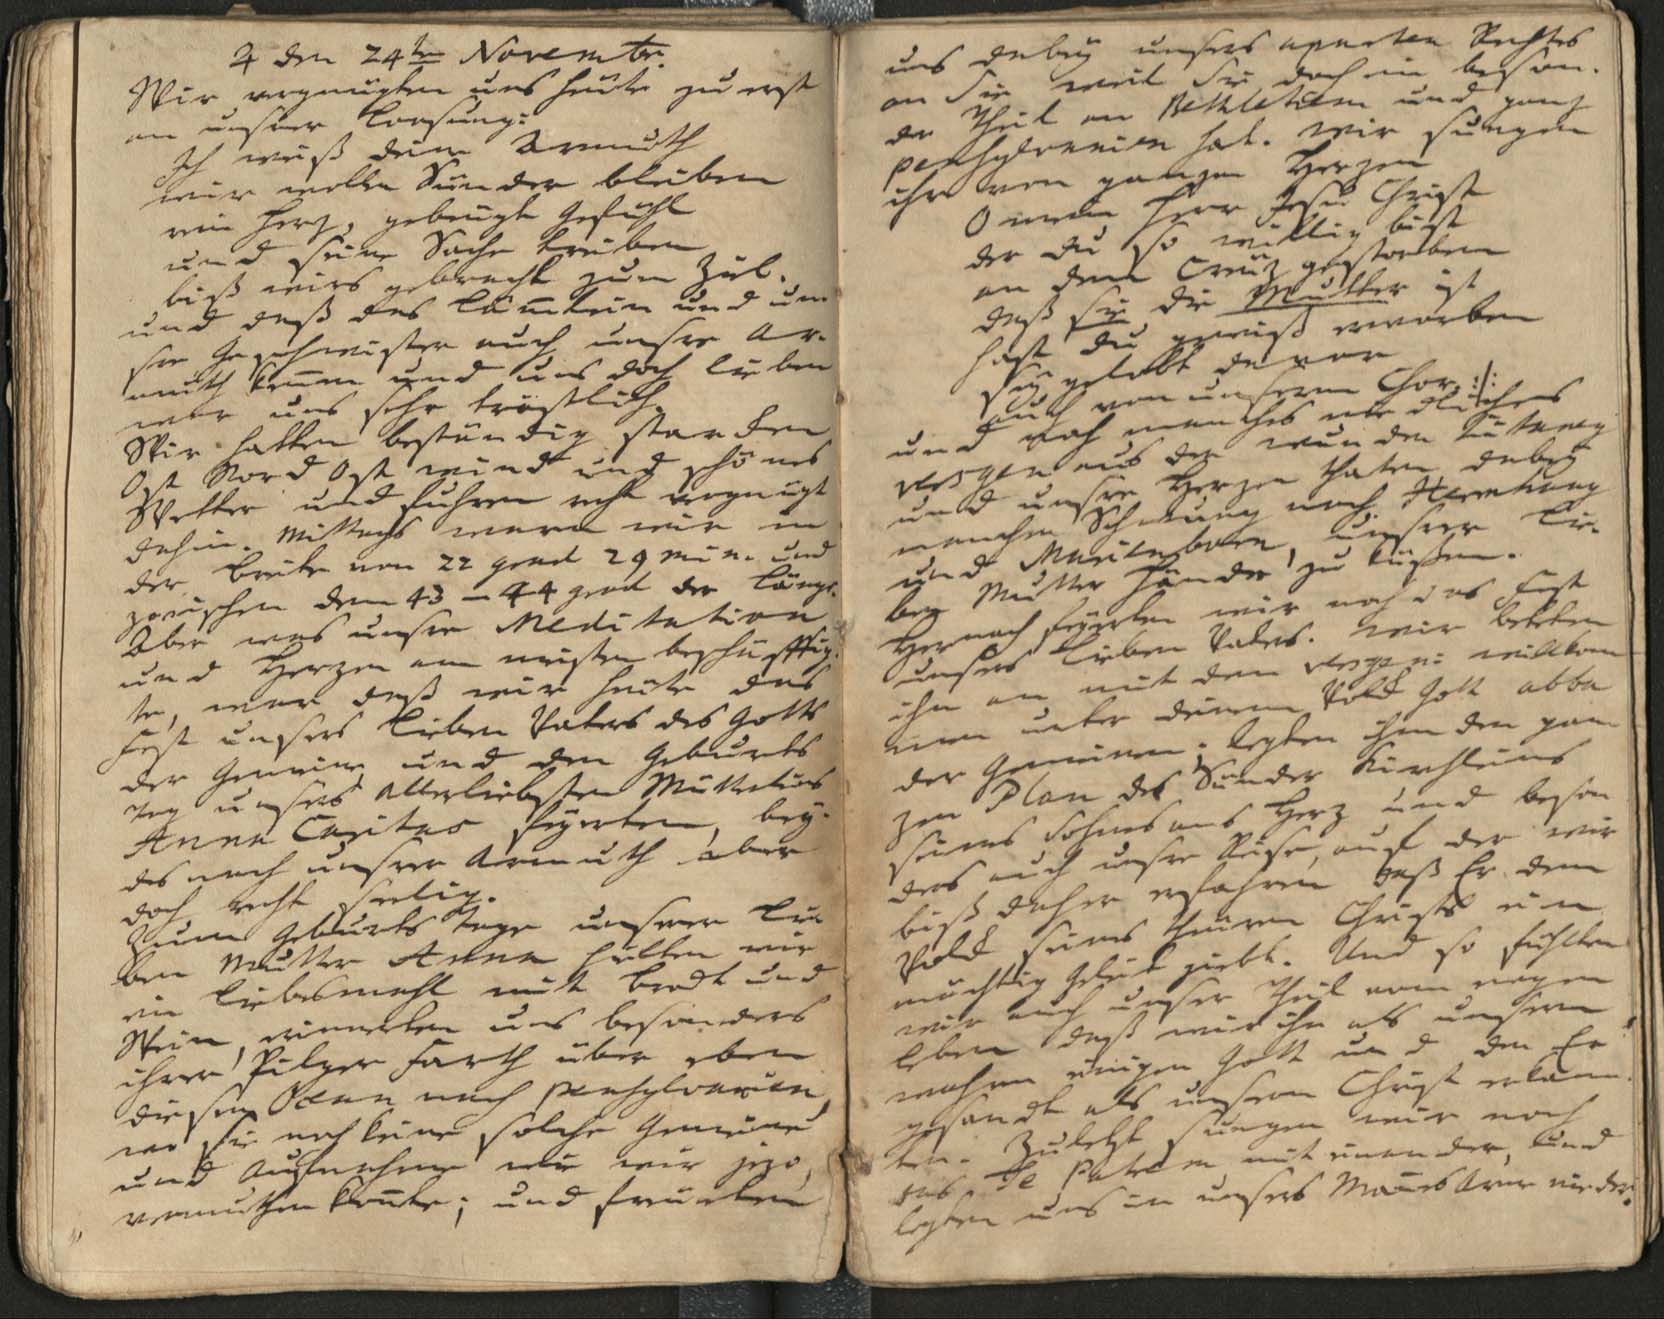 ♃ den 24ten Novembr.
Wir vergnügten uns heute zu erst
an unsrer Loosung:
Ich weiß deine Armuth
wir wollen Sünder bleiben
ein Herz, gebeugt Gefühl
und seine Sache treiben
biß wirs gebracht zum Ziel.
und daß das Lämmlein und un-
sre Geschwister auch unsre Ar-
muth kennen und uns doch lieben
war uns sehr tröstlich.
Wir hatten beständig starcken
Ost Nord Ost wind und schönes
Wetter und fuhren recht vergnügt
dahin. Mittags waren wir in
der Breite von 22 grad 29 Min. und
zwischen dem 43 – 44 grad der Länge.
Aber was unsre Meditation
und Herzen am meisten beschäfftig-
te, war daß wir heute das
Fest unsers lieben Vaters des Gotts
der Gemeine und den Geburts
Tag unsers Allerliebsten Mütterleins
Anna Caritas feyerten, bey-
des nach unsrer Armuth aber
doch recht seelig.
Zum Geburts Tage unserer lie-
ben Mutter Anna hielten wir
ein Liebesmahl mit Brodt und
Wein, erinnerten uns besonders
ihrer Pilger Farth über eben
diesen Ocean nach Pensylvanien,
wo sie noch keine solche Gemeine
und Aufnahme wie wir jezo,
vermuthen konte; und freueten
uns dabey unsers aparten Rechtes
an Sie weil Sie doch ein beson-
der Theil an Bethlehem und ganz
Pensylvanien hat. Wir sungen
ihr von ganzem Herzen
O mein Herr Jesu Christ
der du so willig bist
an dem Creuz gestorben
daß sie die Mutter ist
hast du gewiß erworben
sey gelobt davor
auch von unserm Chor. :/:
und noch manches niedliches
aus der wunden Litaney
und unsre Herzen thaten dabey
manchen Schwung nach Herrnhaag
und Marienborn, unsrer lie-
ben Mutter Hände zu küßen.
Hernach feyerten wir noch das Fest
unsers lieben Vaters. Wir beteten
ihn an mit dem willkom
men unter deinem Volck Gott abba
der Gemeinen; legten ihm den gan
zen Plan des Sünder Kirchleins
seines Sohnes ans Herz und beson
ders auch unsre Reise, auf der wir
biß daher erfahren daß Er dem
Volck seines theuren Christs ein
mächtig Geleit giebt. Und so fühlten
wir auch unser Theil vom ewgen
Leben daß wir ihn als unsern
wahren einigen Gott und den Er
gesandt als unsern Christ erkann-
ten. Zuletzt sungen wir noch
das Te Patrem mit einander, und
legten uns in unsers Mannes Arm nieder.